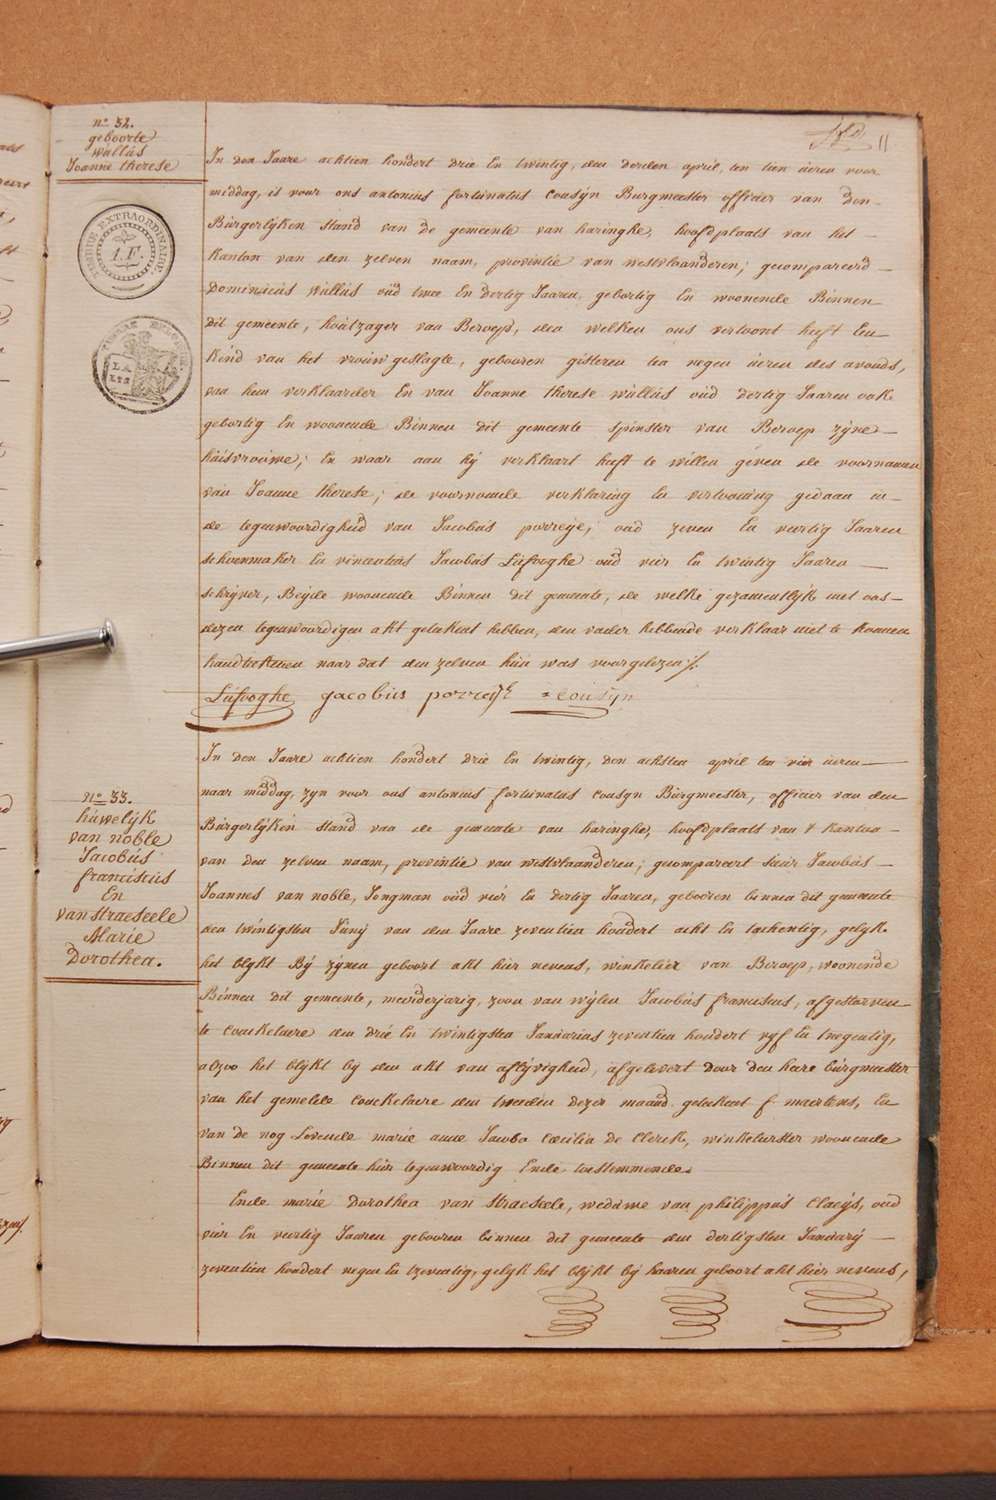 11
n.º 32.
geboorte
wallús
Joanne therese
TIMBRE EXTRAORDINAIRE
1.F.
In den Jaare achtien hondert drie En twintig, den derden april, ten tien úeren voor
middag, is voor ons antonius fortunatus Cousijn Burgmeester officier van den
Búrgerlijken stand van de gemeente van haringhe, hoofdplaats van het
Kanton van den zelven naam, provintie van westvlaanderen; gecompareerd
Dominicús wallús oúd twee En dertig Jaaren, gebortig En woonende Binnen
dit gemeente, hoútzager van Beroep, den welken ons vertoont heeft Een
kind van het vrouw geslagte, gebooren gisteren ten negen úeren des avonds,
van hem verklaarder En van Joanne therese wallús oúd dertig Jaaren ook
gebortig En woonende Binnen dit gemeente spinster van Beroep zijne
húisvrouwe; En waar aan hij verklaart heeft te willen geven de voornamen
van Joanne therese; de voornoemde verklaring En vertooning gedaan in
de tegenwoordigheid van Jacobús porreije, oud zeven En veertig Jaaren
schoenmaker En vincentiús Jacobús Lúfooghe oud vier En twintig Jaaren
schrijver, Beijde woonende Binnen dit gemeente, de welke gezamentlijk met ons
dezen tegenwoordigen akt geteekent hebben, den vader hebbende verklaar niet te konnen
handteekenen naar dat den zelven hún was voorgelezen ./.
Lúfooghe jacobus porreije cousijn
nº. 33.
húwelijk
van noble
Jacobús
franciscús
En
van straeseele
Marie
Dorothea.
In den Jaare achtien hondert drie En twintig, den achsten april ten vier úeren
naar middag, zyn voor ons antonius fortunatus Cousyn Búrgmeester, officier van den
Búrgerlijken stand van de gemeente van haringhe, hoofdplaats van 't kanton
van den zelven naam, provintie van westvlaanderen; gecompareert Sieúr Jacobús
Joannes van noble, Jongman oúd vier En dertig Jaaren, gebooren binnen dit gemeente
den twintigsten Júnij van den Jaare zeventien hondert acht En tachentig, gelijk
het blijkt Bij zijnen geboort akt hier nevens, winkelier van Beroep, woonende
Binnen dit gemeente, meúderjarig, zoon van wijlen Jacobús franciscus, afgestorven
te Couckelaere den drie En twintigsten Janúarius zeventien hondert vyf En tnegentig,
alzoo het blijkt bij den akt van aflijvigheid, afgelevert door den heere búrgmeester
van het gemelde Couckelaere den tweeden dezer maand geteekent f. maertens, En
van de nog Levende marie anne Jacoba Cæcilia de Clerck, winkelierster woonende
Binnen dit gemeente hier tegenwoordig Ende toestemmende.
Ende marie Dorothea van straeseele, wedúwe van philippús Claeijs, oud
vier En veertig Jaaren gebooren binnen dit gemeente den dertigsten Janúarij
zeventien hondert negen En tzeventig, gelijk het blijkt bij haaren geboort akt hier nevens,